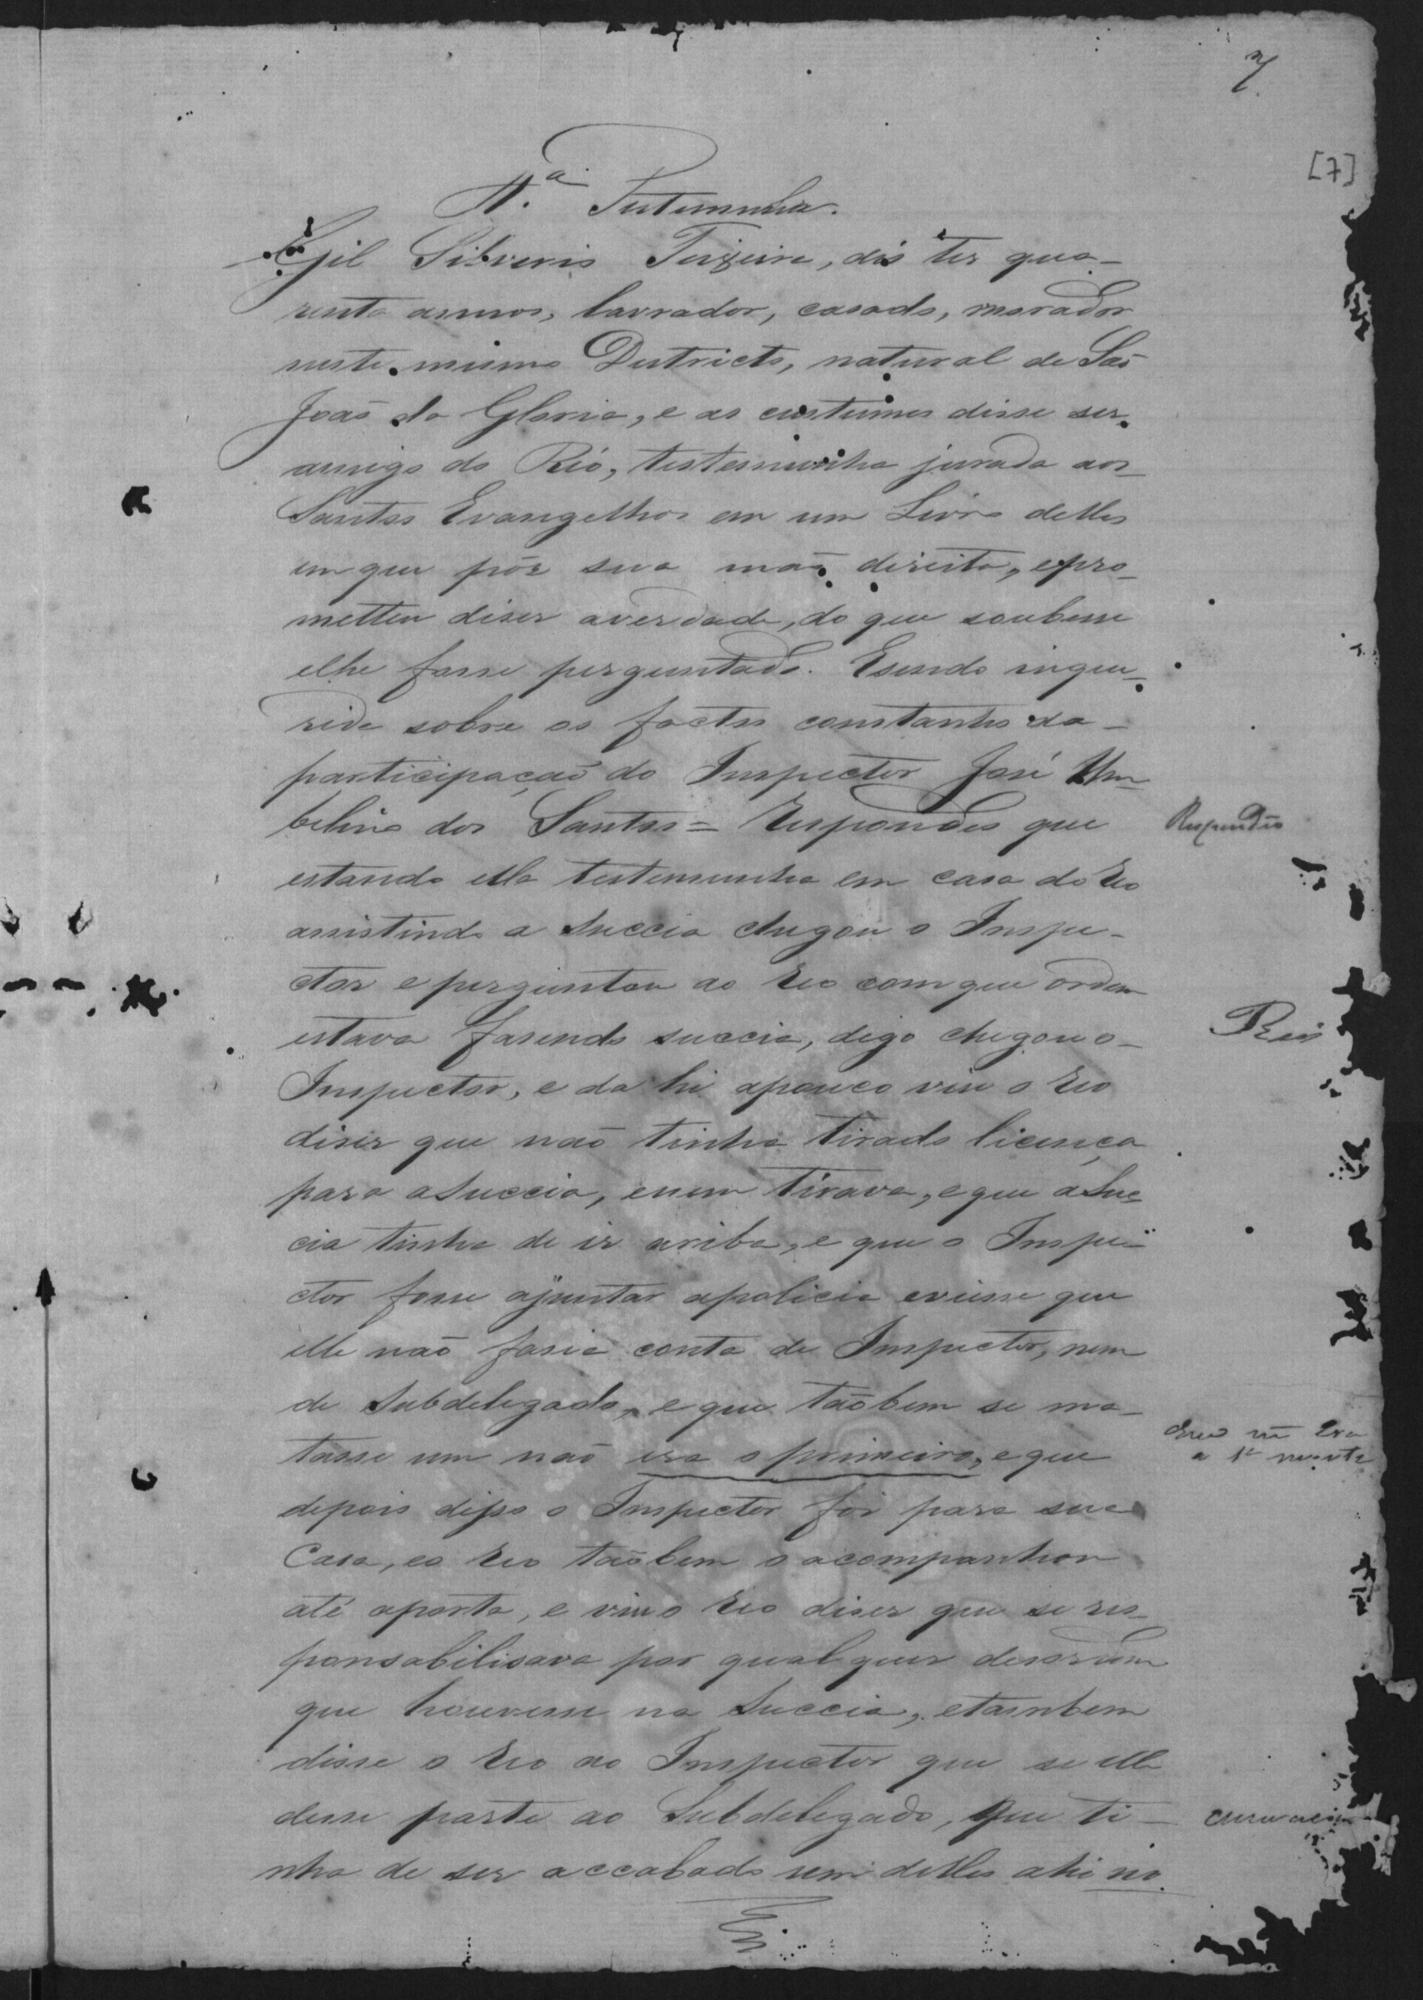 7
[7]
4.ª Testemunha.
Gil Silverio Teixeira, dis ter qua-
renta annos, lavrador, casado, morador
neste mesmo Districto, natural de São
João da Gloria, e as custumes disse ser
amigo do Réo, testemunha jurada aos
Santos Evangelhos em um Livro delles
em que pôz sua mão direita, epro-
metteu diser averdade, do que soubesse
elhe fosse perguntado. Esendo inque-
rida sobre os factos constantes da
participação do Inspector José Um-
belino dos Santos = Respondeo que
estando ella testemunha em casa do reo
assistindo a succia chegou o Inspe-
ctor e perguntou ao reo com que ordem
estava fasendo succia, digo chegou o
Inspector, e da hi apouco viu o reo
diser que não tinha tirado licença
para asuccia, enem tirava, e que a suc-
cia tinha de ir ariba, e que o Inspe-
ctor fosse ajuntar apolicia eviesse que
elle não fasia conta de Inspector, nem
de Subdelegado, e que tãobem se ma-
tasse um não era o primeiro, e que
depois disso o Inspector foi para sua
Casa, eo reo tãobem o acompanhou
até aporta, e viu o reo diser que se res-
ponsabilisava por qualquer desordem
que houvesse na succia, etambem
disse o reo ao Inspector que se elle
desse parte ao Subdelegado, que ti-
nha de ser accabado um delles ahi no
Respondeo
Reo
Que nã era
a 1ª morte